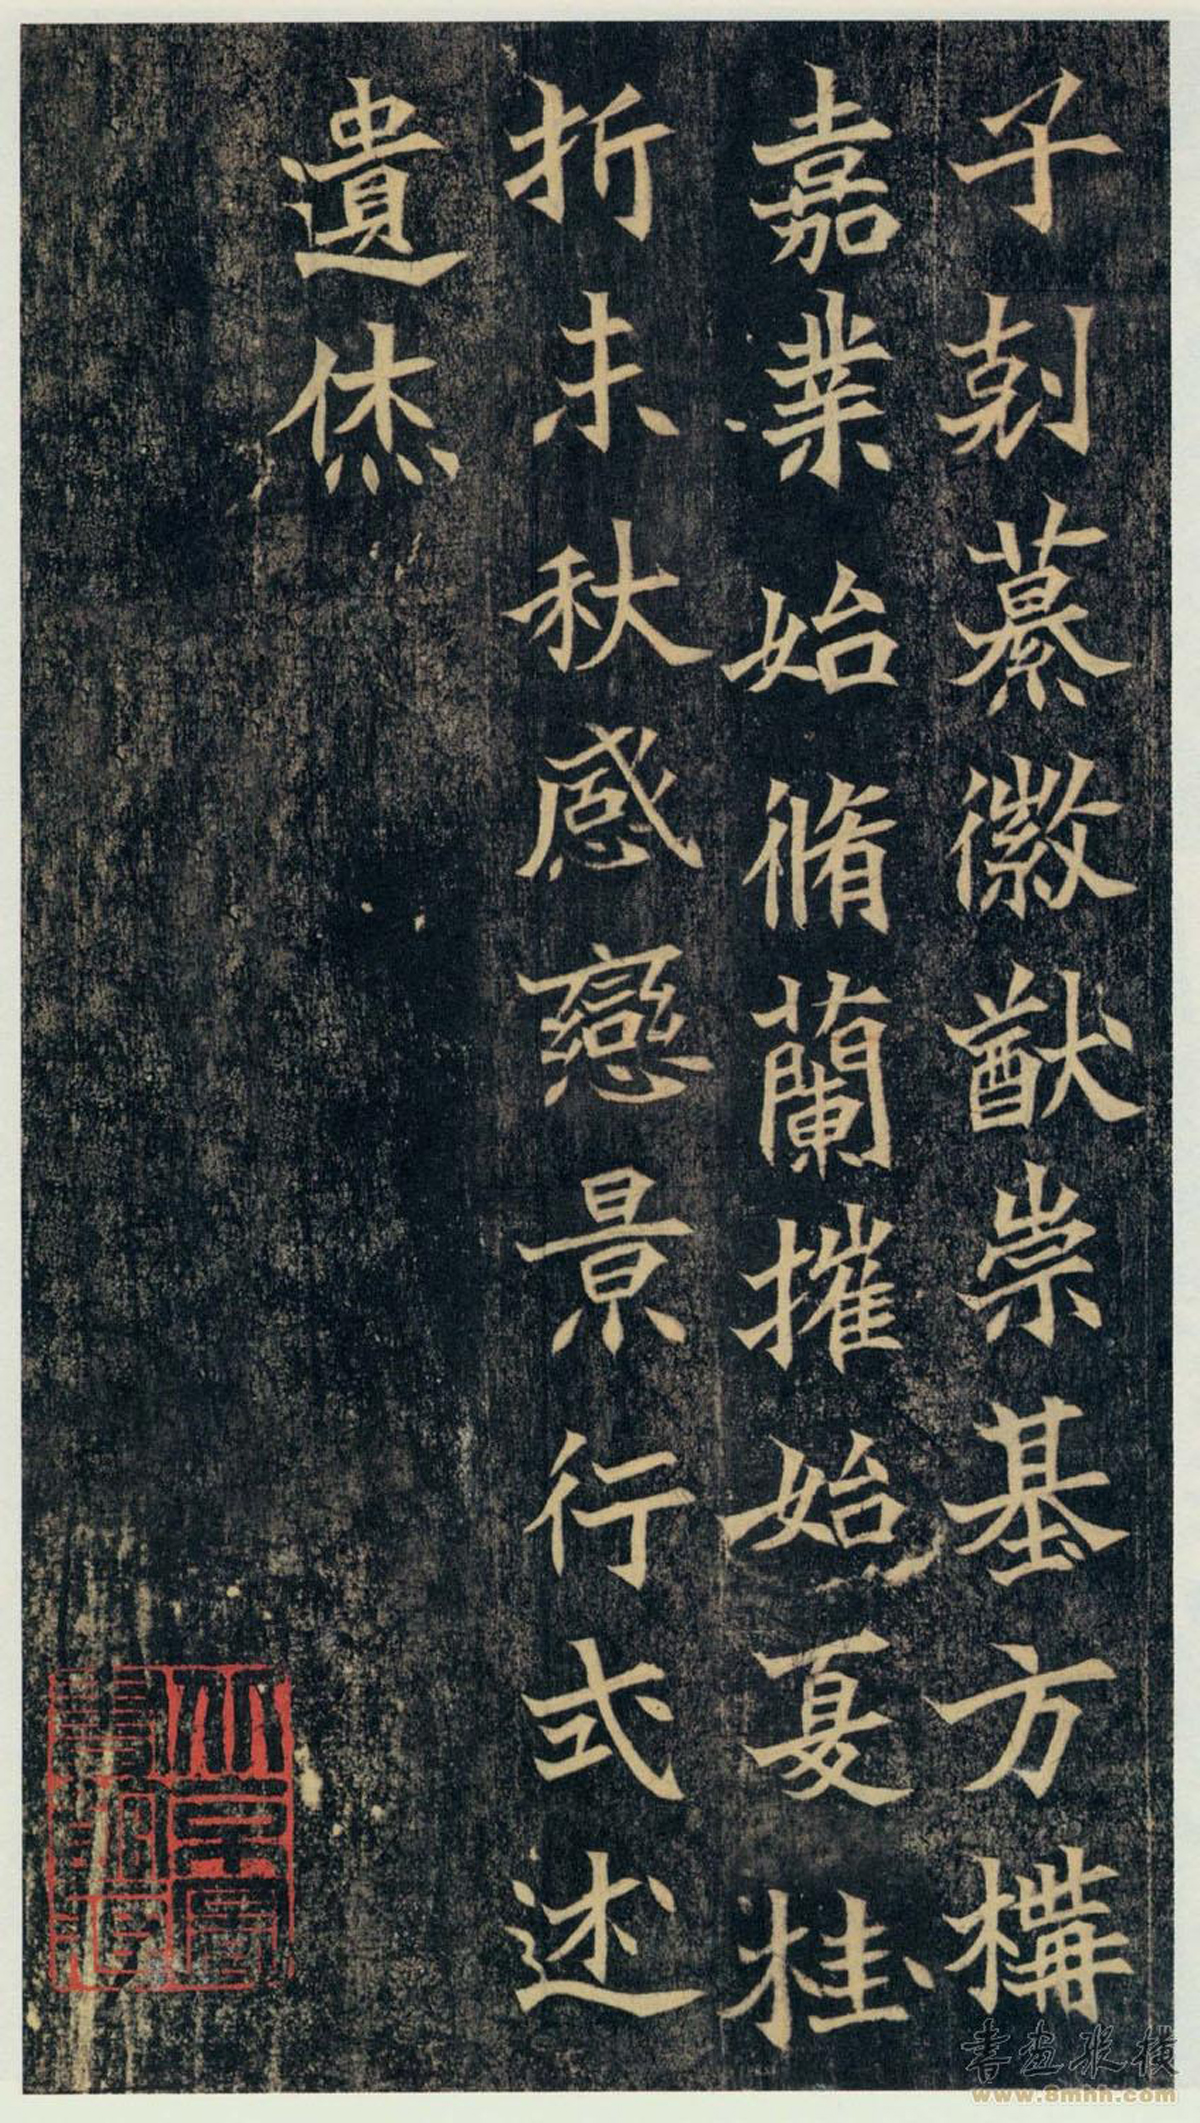 子剋纂徽猷崇基方構
嘉業始脩蘭摧始夏桂
折未秋感戀景行式述
遺烋
書畫縱橫
www.8mhh.com